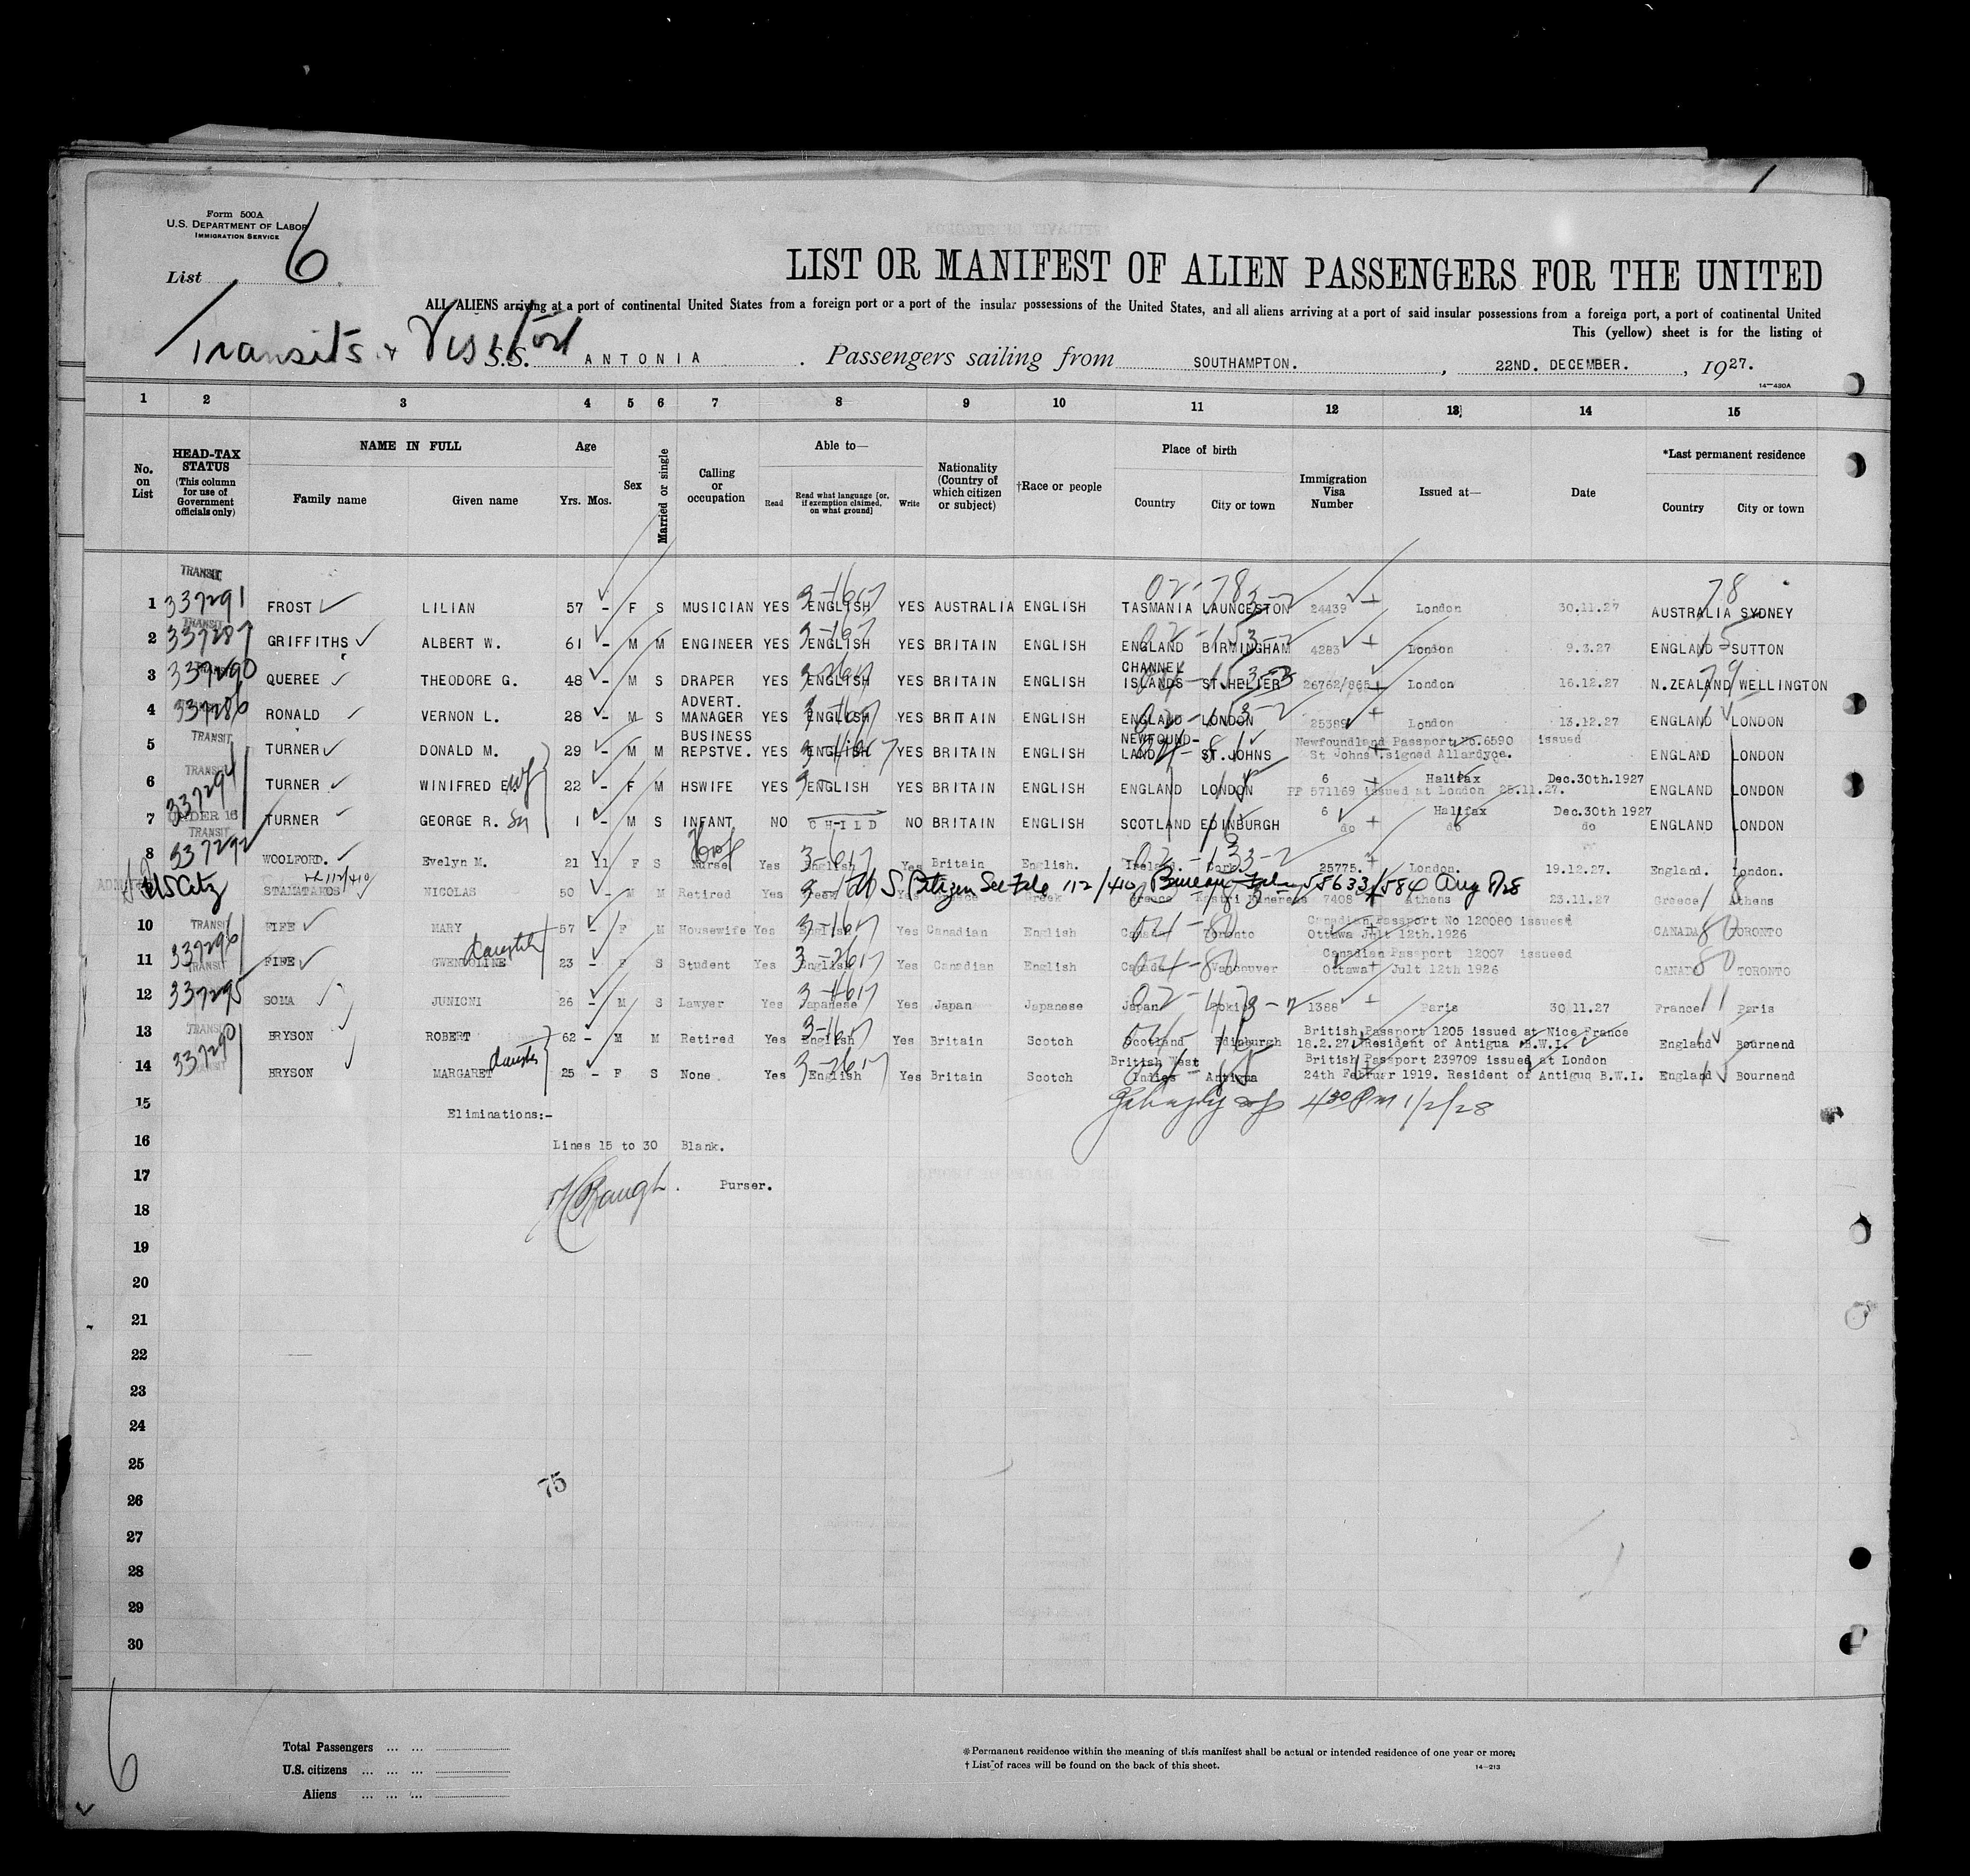 Form 500A
U.S. DEPARTMENT OF LABOR
IMMIGRATION SERVICE
List 6
LIST OR MANIFEST OF ALIEN PASSENGERS FOR THE UNITED
ALL ALIENS arriving at a port of continental United States from a foreign port or a port of the insular possessions of the United States, and all aliens arriving at a port of said insular possessions from a foreign port, a port of continental United
This (yellow) sheet is for the listing of
Transits + Visitors
S.S. ANTONIA . Passengers sailing from SOUTHAMPTON. , 22ND. DECEMBER. , 1927.
14-430A
1 2 3 4 5 6 7 8 9 10 11 12 13 14 15
No. on List
HEAD-TAX STATUS (This column for use of Government officials only)
NAME IN FULL
Family name Given name
Age
Yrs. Mos.
Sex
Married or single
Calling or occupation
Able to—
Read Read what language [or, if exemption claimed, on what ground] Write
Nationality (Country of which citizen or subject)
†Race or people
Place of birth
Country City or town
Immigration Visa Number
Issued at—
Date
*Last permanent residence
Country City or town
TRANSIT
1 337291 FROST LILIAN 57 - F S MUSICIAN YES ENGLISH YES AUSTRALIA ENGLISH TASMANIA LAUNCESTON 24439 London 30.11.27 AUSTRALIA SYDNEY
TRANSIT
2 337287 GRIFFITHS ALBERT W. 61 - M M ENGINEER YES ENGLISH YES BRITAIN ENGLISH ENGLAND BIRMINGHAM 4283 London 9.3.27 ENGLAND SUTTON
3 QUEREE THEODORE G. 48 - M S DRAPER YES ENGLISH YES BRITAIN ENGLISH CHANNEL ISLANDS ST.HELIER 26762/865 London 16.12.27 N.ZEALAND WELLINGTON
4 337286 RONALD VERNON L. 28 - M S ADVERT. MANAGER YES ENGLISH YES BRITAIN ENGLISH ENGLAND LONDON 25389 London 13.12.27 ENGLAND LONDON
TRANSIT
5 TURNER DONALD M. 29 - M M BUSINESS REPSTVE. YES ENGLISH YES BRITAIN ENGLISH NEWFOUND-LAND ST.JOHNS Newfoundland Passport No.6590 issued St Johns signed Allardyce. ENGLAND LONDON
TRANSIT
6 337294 TURNER WINIFRED E. wf 22 - F M HSWIFE YES ENGLISH YES BRITAIN ENGLISH ENGLAND LONDON 6 Halifax Dec.30th.1927 PP 571169 issued at London 25.11.27. ENGLAND LONDON
UNDER 16
7 TURNER GEORGE R. Sn 1 - M S INFANT NO CHILD NO BRITAIN ENGLISH SCOTLAND EDINBURGH 6 Halifax Dec.30th 1927 do do do ENGLAND LONDON
TRANSIT
8 337292 WOOLFORD. Evelyn M. 21 11 F S Nurse Yes English Yes Britain English. Ireland. Cork 25775. London. 19.12.27. England. London.
US Citz STAMATAKOS NICOLAS 50 - M M Retired Yes Greek Yes Greece Greek Greece 7408 Athens 23.11.27 Greece Athens
US Citizen See File 112/410 Bureau File 55633/584 Aug 8/28
TRANSIT
10 FIFE MARY 57 - F M Housewife Yes English Yes Canadian English Canada Toronto Canadian Passport No 120080 issued Ottawa Jult 12th.1926 CANADA TORONTO
337296 TRANSIT
11 FIFE GWENDOLINE daughter 23 - F S Student Yes English Yes Canadian English Canada Vancouver Canadian Passport 12007 issueed Ottawa Jult 12th 1926 CANADA TORONTO
12 337295 SOMA JUNICHI 26 - M S Lawyer Yes Japanese Yes Japan Japanese Japan Tokio 1388 Paris 30.11.27 France Paris
TRANSIT
13 BRYSON ROBERT 62 - M M Retired Yes English Yes Britain Scotch Scotland Edinburgh British Passport 1205 issued at Nice France 18.2.27. Resident of Antigua B.W.I. England Bournend
337290 TRANSIT
14 BRYSON MARGARET 25 - F S None Yes English Yes Britain Scotch British West Indies Antigua British Passport 239709 issued at London 24th Februrr 1919. Resident of Antigua B.W.I. England Bournend
15 Eliminations:- 4 30 PM 1/2/28
16 Lines 15 to 30 Blank.
17 Purser.
18
19
20
21
22
23
24
25
75
26
27
28
29
30
6
Total Passengers ... ...
U.S. citizens ... ... ...
Aliens ... ... ...
*Permanent residence within the meaning of this manifest shall be actual or intended residence of one year or more.
† List of races will be found on the back of this sheet.
14-213